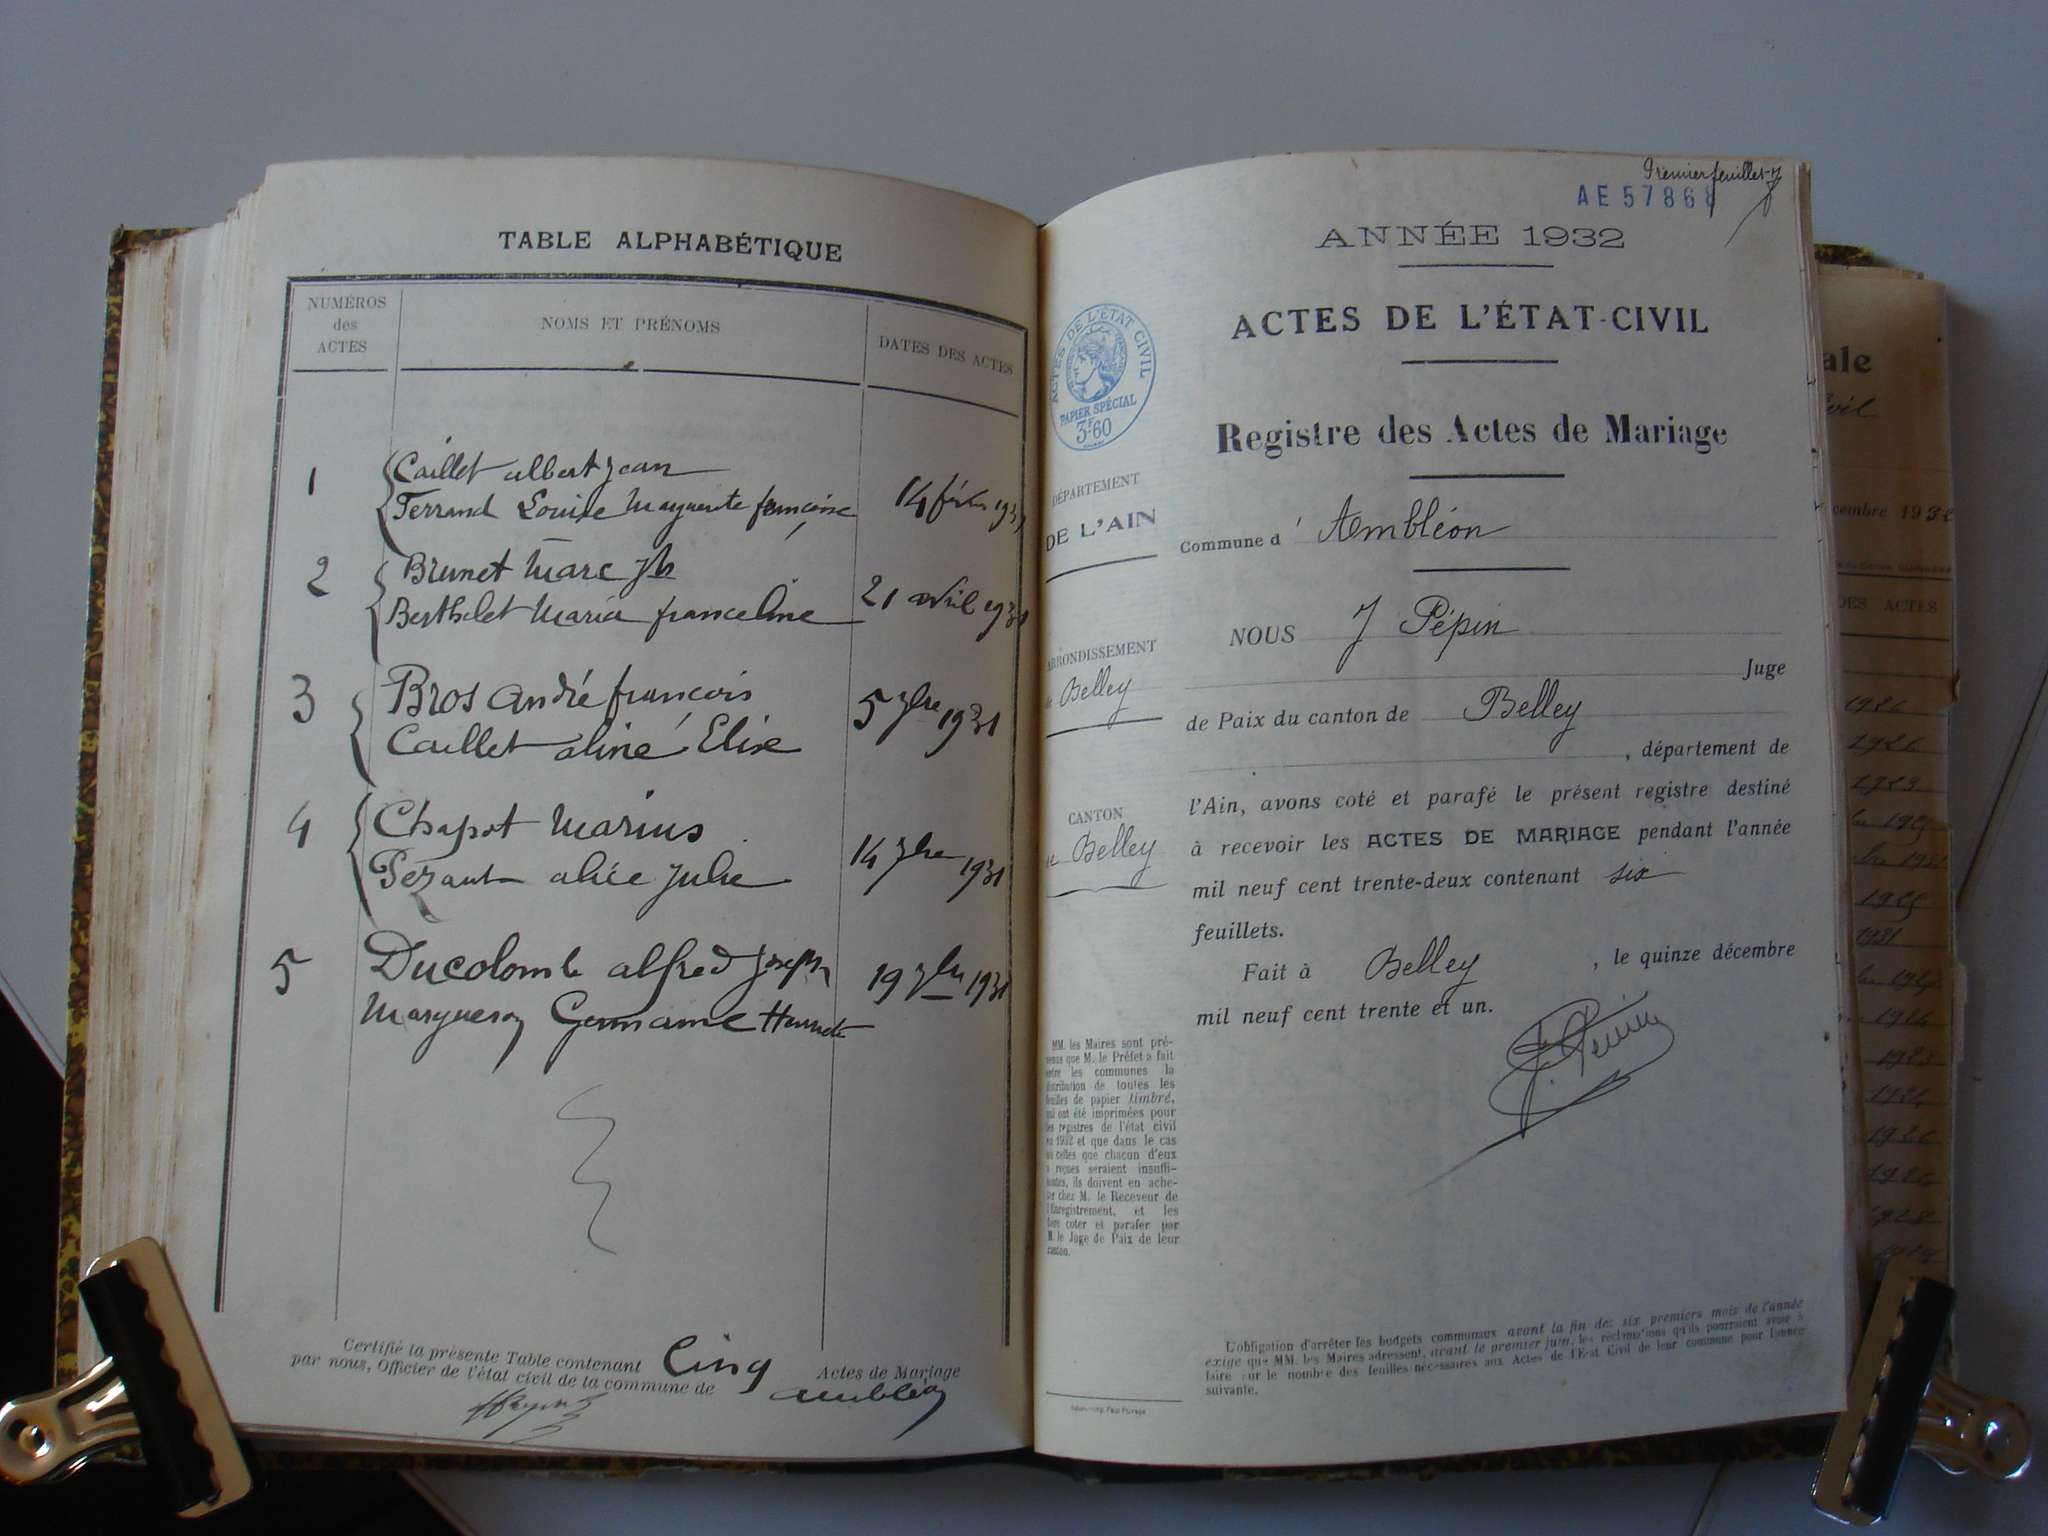 TABLE ALPHABÉTIQUE
NUMÉROS
des
ACTES
NOMS ET PRÉNOMS
DATES DES ACTES
1
Caillet albert jean
Ferrand Louise Marguerite françoise
14 févr 1931
2
Brunet Marc Jh
Berthelet Maria franceline
21 avril 1931
3
Bros André françois
Caillet aline Elise
5 7bre 1931
4
Chapot Marius
Pézant alice Julie
14 7bre 1931
5
Ducolomb alfred Joseph
Margueron Germaine
19 1931
Certifié la présente Table contenant Cinq Actes de Mariage
par nous, Officier de l'état civil de la commune de ambléon
Premier feuillet
AE 57868
ANNÉE 1932
ACTES DE L'ÉTAT-CIVIL
Registre des Actes de Mariage
ACTES DE L'ÉTAT CIVIL
PAPIER SPÉCIAL
3F60
DÉPARTEMENT
DE L'AIN
Commune d' Ambléon
NOUS J Pépin
Juge
ARRONDISSEMENT
de Belley
de Paix du canton de Belley
, département de
CANTON
de Belley
l'Ain, avons coté et parafé le présent registre destiné
à recevoir les ACTES DE MARIAGE pendant l'année
mil neuf cent trente-deux contenant six
feuillets.
Fait à Belley , le quinze décembre
mil neuf cent trente et un.
J. Pépin
MM. les Maires sont pré-
venus que M. le Préfet a fait
entre les communes la
distribution de toutes les
feuilles de papier timbré,
qui ont été imprimées pour
les registres de l'état civil
en 1932 et que dans le cas
où celles que chacun d'eux
a reçues seraient insuffi-
santes, ils doivent en ache-
ter chez M. le Receveur de
l'Enregistrement, et les
faire coter et parafer par
M. le Juge de Paix de leur
canton.
L'obligation d'arrêter les budgets communaux avant la fin des six premiers mois de l'année
exige que MM. les Maires adressent, avant le premier juin, les réclamations qu'ils pourraient avoir à
faire sur le nombre des feuilles nécessaires aux Actes de l'État Civil de leur commune pour l'année
suivante.
ale
ivil
cembre 1932
DES ACTES
1926
1926
1923
1931
1931
1924
1923
1924
1926
1926
1928